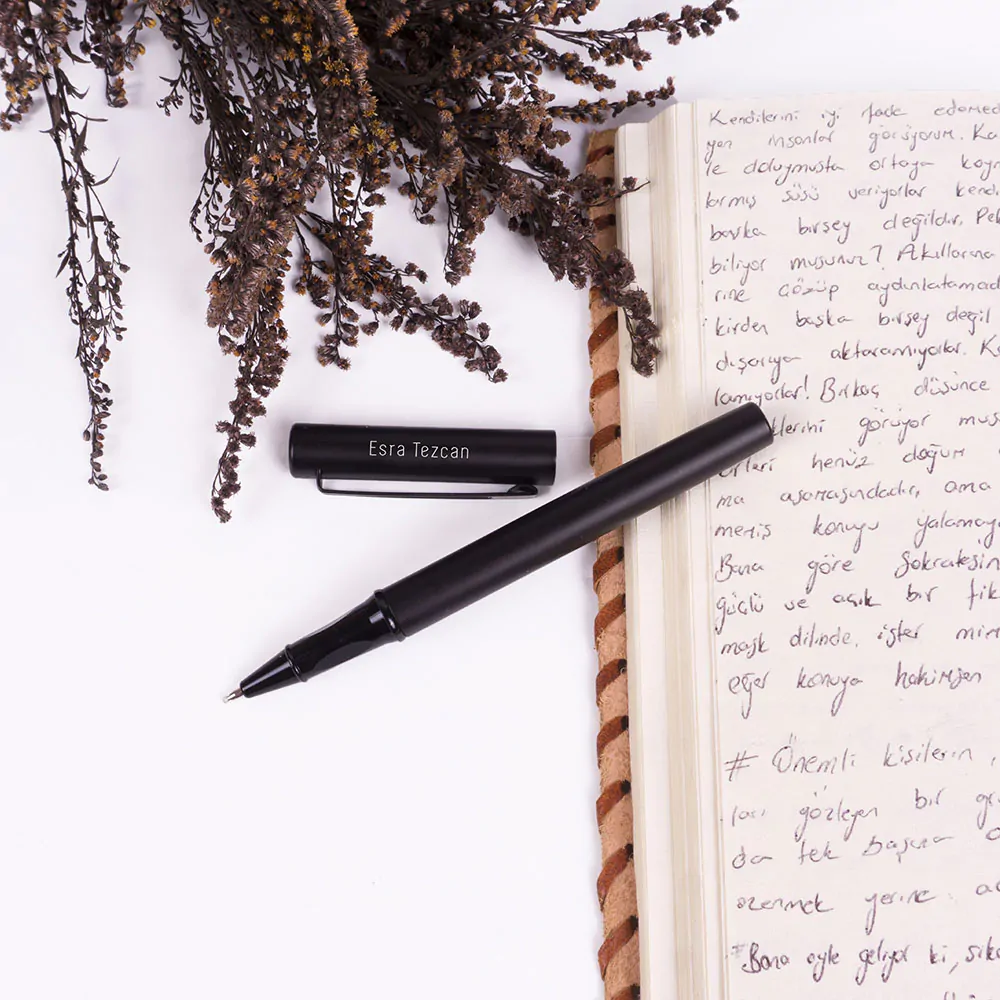 Esra Tezcan
Kendilerini iyi ifade edemed
yen insanlar görüyorum. Ka
le doluymuşta ortaya koyn
larmış süsü veriyorlar kend
başka birşey değildir. Pek
biliyor musunuz? Akıllarına
rine çözüp aydınlatamad
kirden başka birşey değil
dışarıya aktaramıyorlar. K
lamıyorlar! Birkaç düşünce
lerini görüyor mus
henüz doğum
ma aşamasındadır, ama
memiş konuyu yalamay
Bana göre Sokratesin
güçlü ve açık bir fik
maşk dilinde, işler mim
eğer konuya hakimsen
# Önemli kişilerin
ları gözleyen bir gr
da tek başına
özenmek yerine
"Bana öyle geliyor ki, sık